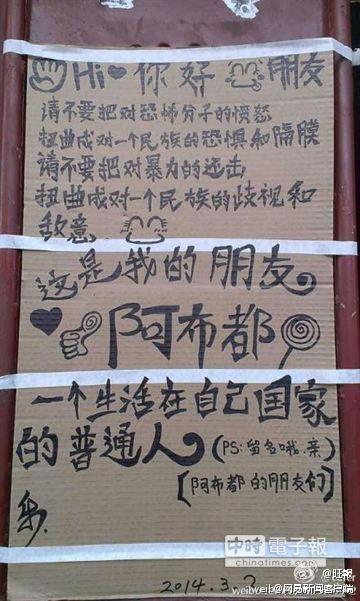 Hi 你好 朋友
请不要把对恐怖分子的愤怒
扭曲成对一个民族的恐惧和隔膜
请不要把对暴力的还击
扭曲成对一个民族的歧视和
敌意.
这是我的朋友
阿布都
一个生活在自己国家
的普通人 (PS:留名哦.亲)
[阿布都的朋友们]
2014.3.2
中時電子報
chinatimes.com
@旺报
weibo@网易新闻客户端